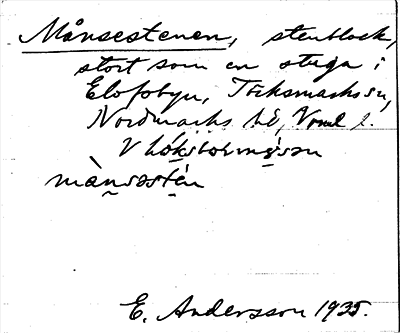 Månsestenen, stenblock,
stort som en stuga i
Elofsbyn, Töcksmarks sn,
Nordmarks hd, Vrml l.
V
månsəstén
E. Andersson 1935.